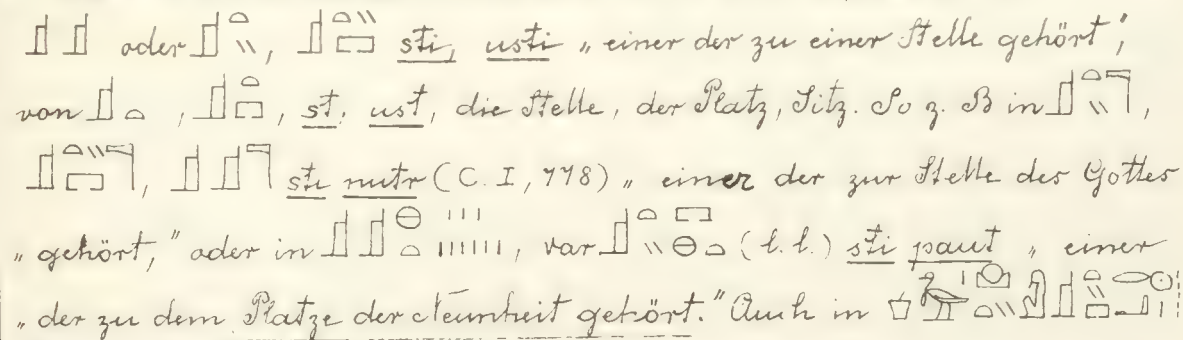 𓊨 𓊨 oder 𓊨𓏏𓏭, 𓊨𓏏𓏭𓉐 sti, usti „einer der zu einer Stelle gehört“,
von 𓊨𓏏, 𓊨𓏏𓉐, st, ust, die Stelle, der Platz, Sitz. So z. B in 𓊨𓏏𓏭𓊹,
𓊨𓏏𓏭𓉐𓊹, 𓊨 𓊨𓊹 sti nutr (C. I, 778) „einer der zur Stelle des Gottes
„gehört,“ oder in 𓊨𓊨 , var 𓊨𓏏𓏭 (l. l.) sti paut „einer
„der zu dem Platze der Neunheit gehört.“ Auch in